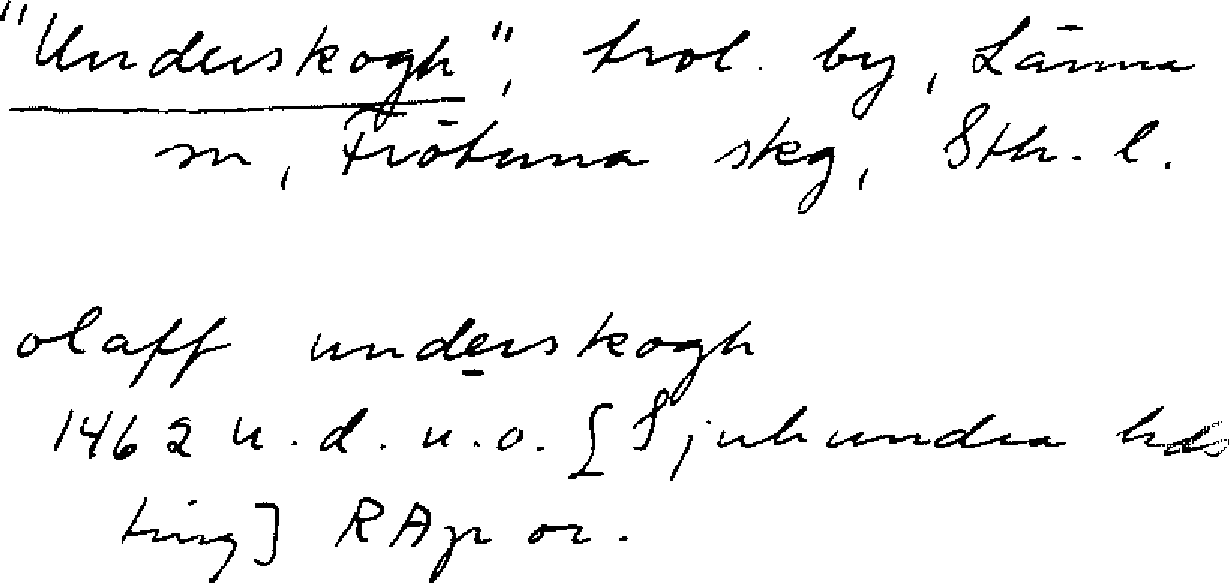 "Underskogh", trol. by, Länna
sn, Frötuna skg, Sth. l.
olaff underskogh
1462 u.d. u.o. [Sjuhundra hds
ting] RAp or.